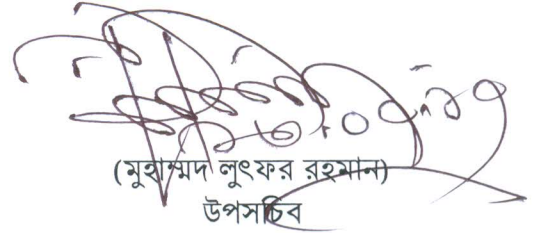 (মুহাম্মদ লুৎফর রহমান)
উপসচিব